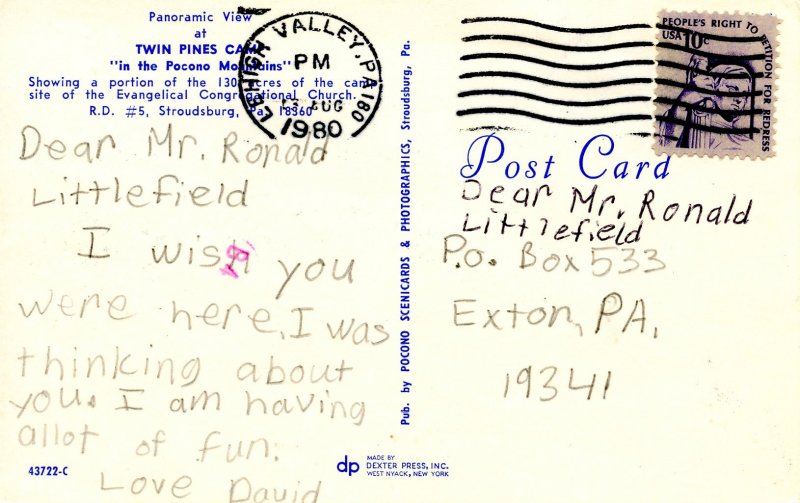 Panoramic View
at
TWIN PINES CAMP
"in the Pocono Mountains"
Showing a portion of the 130 acres of the camp
site of the Evangelical Congregational Church.
R.D. #5, Stroudsburg, Pa. 18360
LEHIGH VALLEY, PA 180
PM
AUG
1980
PEOPLE'S RIGHT TO PETITION FOR REDRESS
USA 10c
Dear Mr. Ronald
Littlefield
I wish you
were here. I was
thinking about
you. I am having
allot of fun.
Love David
43722-C
Pub. by POCONO SCENICARDS & PHOTOGRAPHICS, Stroudsburg, Pa.
Post Card
Dear Mr. Ronald
Littlefield
P.o. Box 533
Exton, PA,
19341
dp
MADE BY
DEXTER PRESS, INC.
WEST NYACK, NEW YORK